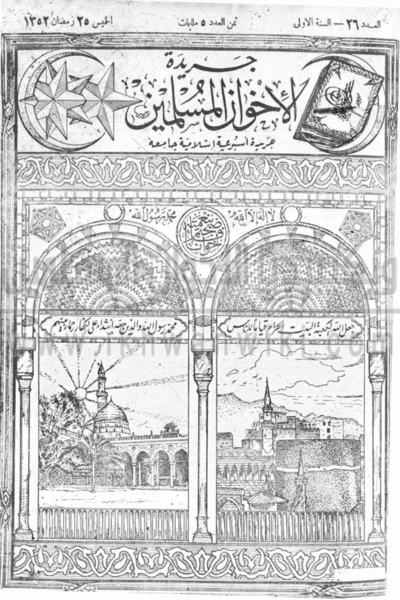 العدد ٢٦ — السنة الاولى
ثمن العدد ٥ مليمات
الخميس ٢٥ رمضان ١٣٥٢
جريدة
الإخوان المسلمين
جريدة أسبوعية إسلامية جامعة
لا إله إلا الله
محمد رسول الله
جعل الله الكعبة البيت الحرام قياما للناس
محمد رسول الله والذين معه أشداء على الكفار رحماء بينهم